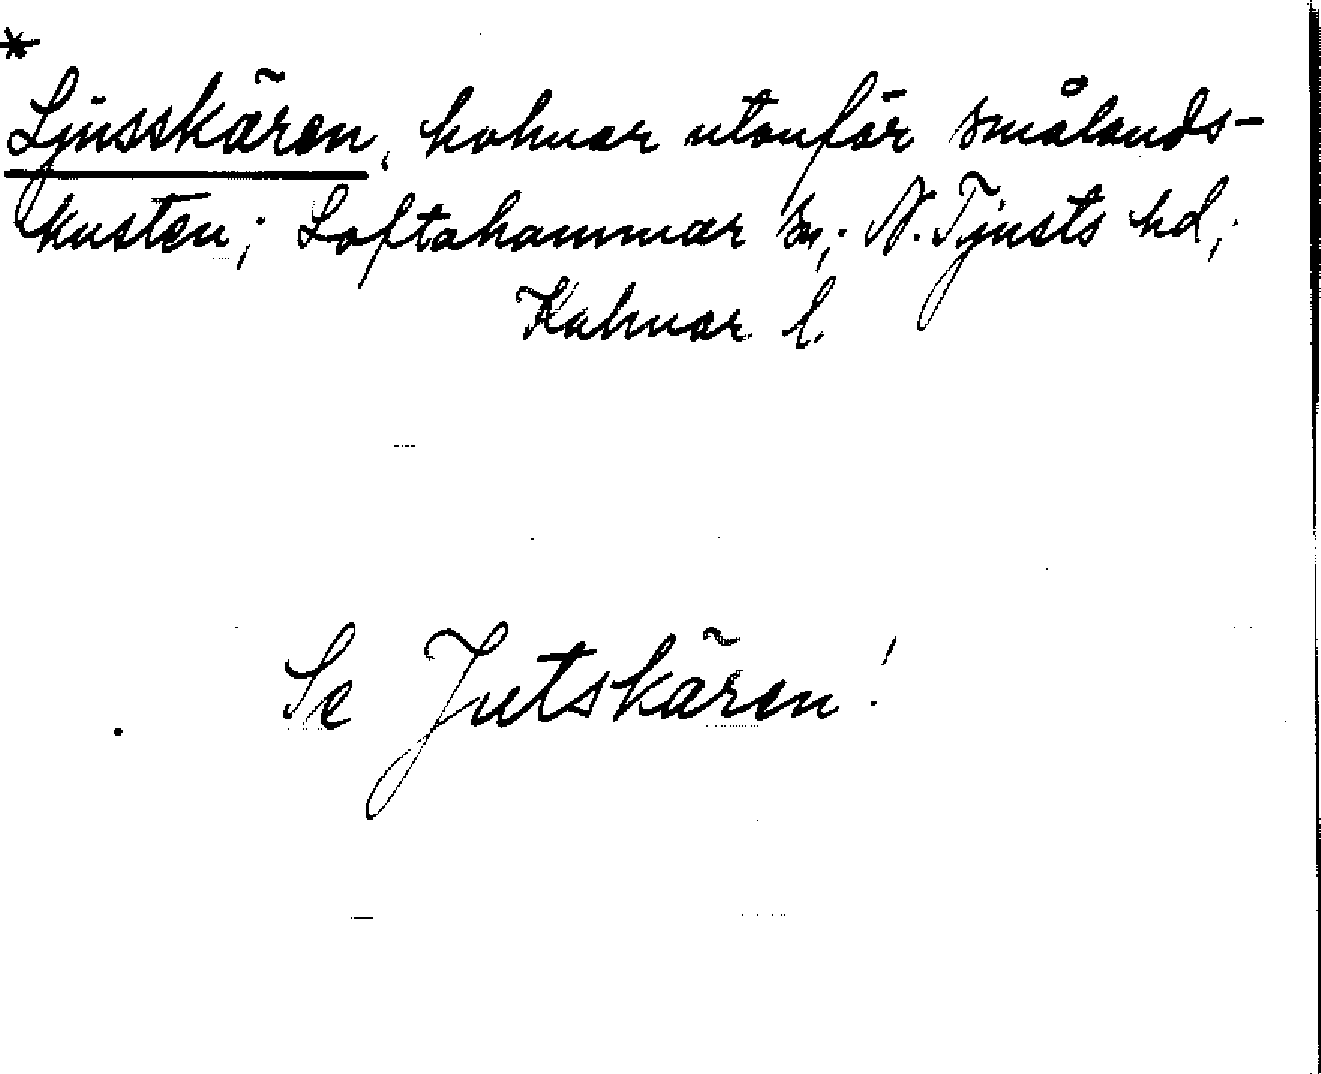 *
Ljusskären, holmar utanför smålands-
kusten; Loftahammar sn; N. Tjusts hd;
Kalmar l.
Se Jutskären!